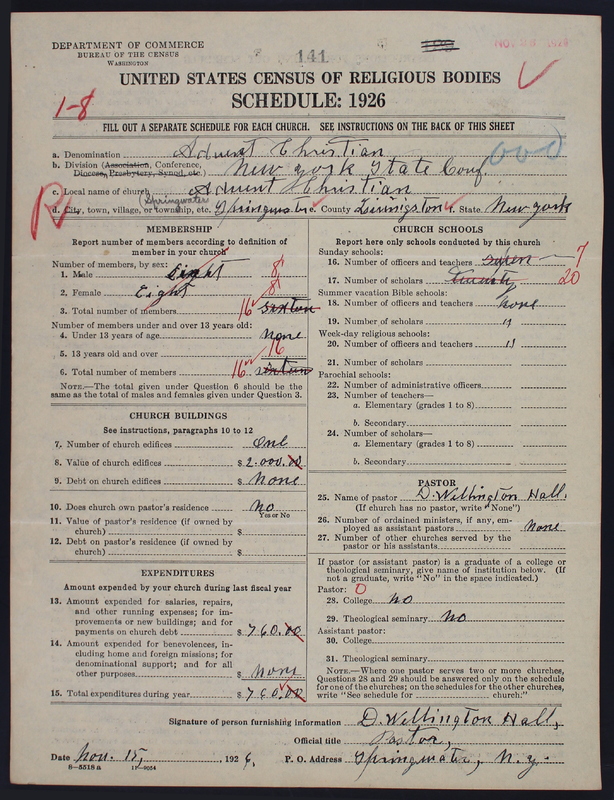 DEPARTMENT OF COMMERCE
BUREAU OF THE CENSUS
WASHINGTON
141
UNITED STATES CENSUS OF RELIGIOUS BODIES
SCHEDULE: 1926
1-8
FILL OUT A SEPARATE SCHEDULE FOR EACH CHURCH. SEE INSTRUCTIONS ON THE BACK OF THIS SHEET
a. Denomination Advent Christian
b. Division (Association, Conference, Diocese, Presbytery, Synod, etc.) New York State Conf. 000
c. Local name of church Advent Christian
d. City, town, village, or township, etc. (Springwater) Springwater e. County Livingston f. State New York
MEMBERSHIP
Report number of members according to definition of member in your church
Number of members, by sex:
1. Male Eight 8
2. Female Eight 8
3. Total number of members 16 sixteen
Number of members under and over 13 years old:
4. Under 13 years of age None
5. 13 years old and over 16
6. Total number of members 16 sixteen
NOTE.—The total given under Question 6 should be the same as the total of males and females given under Question 3.
CHURCH BUILDINGS
See instructions, paragraphs 10 to 12
7. Number of church edifices One
8. Value of church edifices $ 2.000.00
9. Debt on church edifices $ None
10. Does church own pastor's residence No
Yes or No
11. Value of pastor's residence (if owned by church) $
12. Debt on pastor's residence (if owned by church) $
EXPENDITURES
Amount expended by your church during last fiscal year
13. Amount expended for salaries, repairs, and other running expenses; for improvements or new buildings; and for payments on church debt $ 760.00
14. Amount expended for benevolences, including home and foreign missions; for denominational support; and for all other purposes $ None
15. Total expenditures during year $ 760.00
CHURCH SCHOOLS
Report here only schools conducted by this church
Sunday schools:
16. Number of officers and teachers seven 7
17. Number of scholars Twenty 20
Summer vacation Bible schools:
18. Number of officers and teachers None
19. Number of scholars "
Week-day religious schools:
20. Number of officers and teachers "
21. Number of scholars
Parochial schools:
22. Number of administrative officers
23. Number of teachers—
a. Elementary (grades 1 to 8)
b. Secondary
24. Number of scholars—
a. Elementary (grades 1 to 8)
b. Secondary
PASTOR
25. Name of pastor D. Wellington Hall.
(If church has no pastor, write "None")
26. Number of ordained ministers, if any, employed as assistant pastors None
27. Number of other churches served by the pastor or his assistants
If pastor (or assistant pastor) is a graduate of a college or theological seminary, give name of institution below. (If not a graduate, write "No" in the space indicated.)
Pastor: 0
28. College No
29. Theological seminary No
Assistant pastor:
30. College
31. Theological seminary
NOTE.—Where one pastor serves two or more churches, Questions 28 and 29 should be answered only on the schedule for one of the churches; on the schedules for the other churches, write "See schedule for ________ church."
Signature of person furnishing information D. Wellington Hall,
Official title Pastor,
Date Nov. 15, 1926, P. O. Address Springwater, N. Y.
8—5518 a 1F—9054